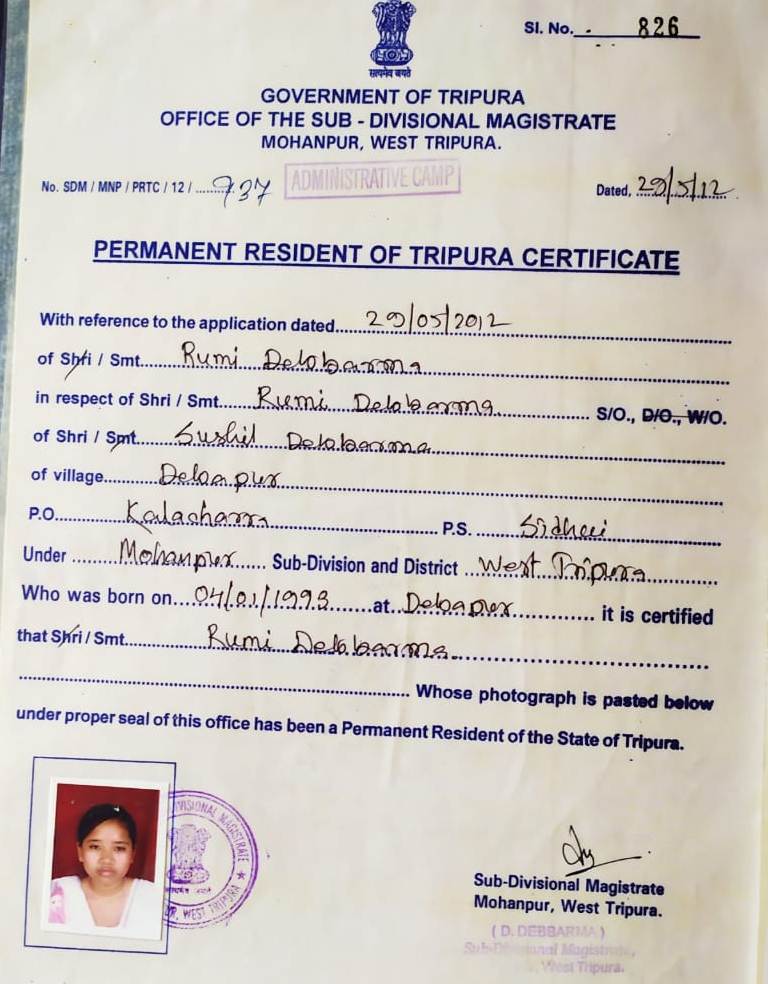 Sl. No. 826
सत्यमेव जयते
GOVERNMENT OF TRIPURA
OFFICE OF THE SUB - DIVISIONAL MAGISTRATE
MOHANPUR, WEST TRIPURA.
No. SDM / MNP / PRTC / 12 / ......737 ADMINISTRATIVE CAMP Dated, 29/5/12
PERMANENT RESIDENT OF TRIPURA CERTIFICATE
With reference to the application dated...29/05/2012
of Shri / Smt....Rumi Debbarma
in respect of Shri / Smt....Rumi Debbarma S/O., D/O., W/O.
of Shri / Smt....Sushil Debbarma
of village....Debapur
P.O....Kalacharra P.S. ....Sidhai
Under ....Mohanpur.... Sub-Division and District ...West Tripura
Who was born on...04/01/1993....at..Debapur.... it is certified
that Shri / Smt....Rumi Debbarma
.... Whose photograph is pasted below
under proper seal of this office has been a Permanent Resident of the State of Tripura.
DIVISIONAL MAGISTRATE
WEST TRIPURA
Sub-Divisional Magistrate
Mohanpur, West Tripura.
( D. DEBBARMA )
Sub-Divisional Magistrate,
West Tripura.